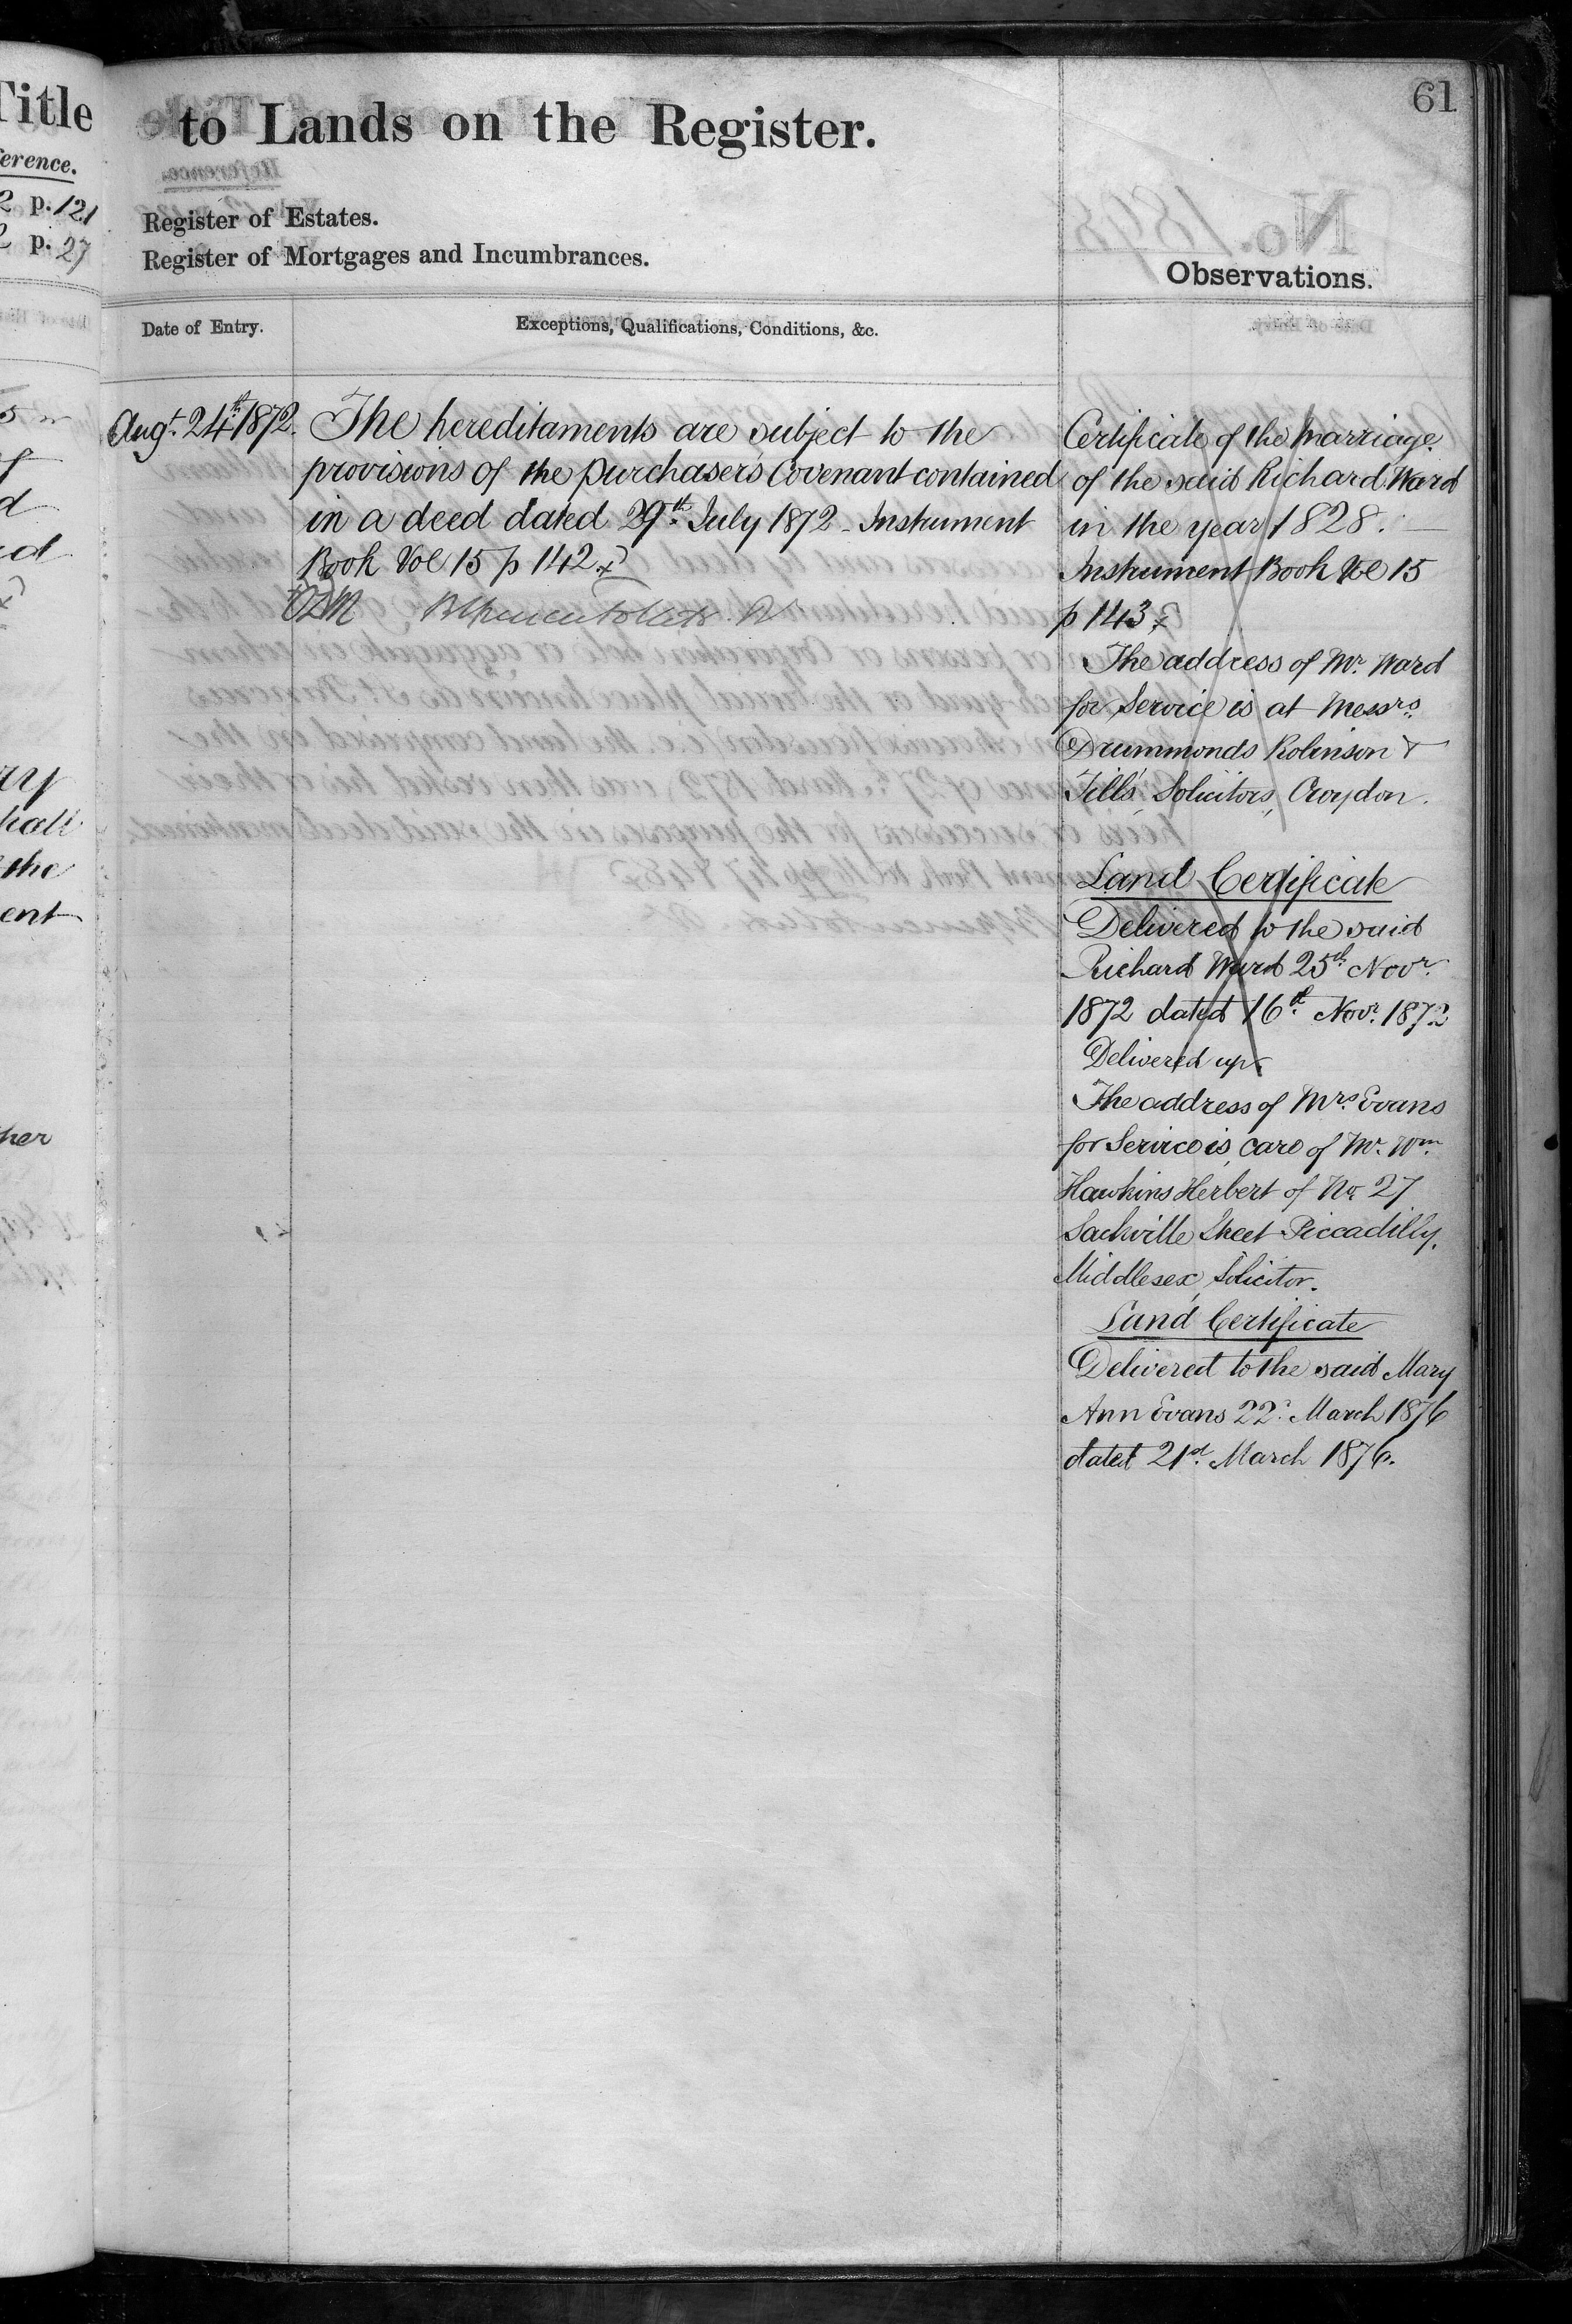 Title
ference.
2 p. 121
2 p. 27
61
to Lands on the Register.
Register of Estates.
Register of Mortgages and Incumbrances.
Observations.
Date of Entry.
Exceptions, Qualifications, Conditions, &c.
Augt. 24th 1872.
The hereditaments are subject to the
provisions of the purchaser's Covenant contained
in a deed dated 29th July 1872 - Instrument
Book Vol 15 p 142
Certificate of the Marriage
of the said Richard Ward
in the year 1828.
Instrument Book Vol 15
p 143
The address of Mr. Ward
for Service is at Messrs.
Drummonds Robinson &
Till's, Solicitors, Croydon.
Land Certificate
Delivered to the said
Richard Ward 25th Novr.
1872 dated 16th Novr. 1872
Delivered up
The address of Mrs. Evans
for Service is, care of Mr. Wm.
Hawkins Herbert of No. 27
Sackville Street Piccadilly,
Middlesex, Solicitor.
Land Certificate
Delivered to the said Mary
Ann Evans 22d. March 1876
dated 21st. March 1876.